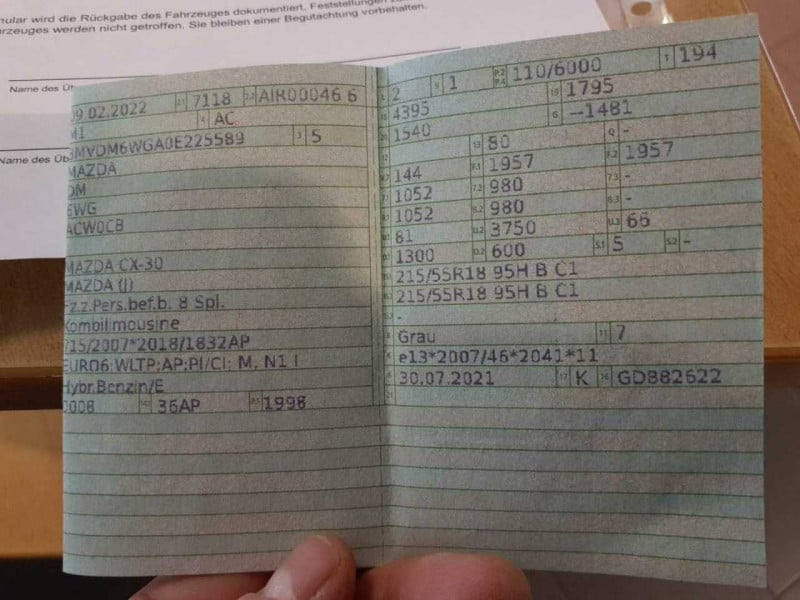 mular wird die Rückgabe des Fahrzeuges dokumentiert. Feststellungen
rzeuges werden nicht getroffen. Sie bleiben einer Begutachtung vorbehalten.
Name des Üb
Name des Üb
09.02.2022 2.1 7118 2.2 AIR00046 6
M1 4 AC
JMVDM6WGA0E225589 3 5
MAZDA
DM
6WG
ACW0CB
MAZDA CX-30
MAZDA (J)
Fz.z.Pers.bef.b. 8 Spl.
Kombilimousine
715/2007*2018/1832AP
EURO6;WLTP;AP;PI/CI; M, N1 I
Hybr.Benzin/E
0008 14.1 36AP P.1 1998
L 2 9 1 P.2 P.4 110/6000 T 194
18 4395 19 1795
20 1540 G --1481
12 - 13 80 Q -
V.7 144 F.1 1957 F.2 1957
7.1 1052 7.2 980 7.3 -
8.1 1052 8.2 980 8.3 -
U.1 81 U.2 3750 U.3 66
O.1 1300 O.2 600 S.1 5 S.2 -
15.1 215/55R18 95H B C1
15.2 215/55R18 95H B C1
15.3 -
R Grau 11 7
K e13*2007/46*2041*11
6 30.07.2021 17 K 16 GD882622
21